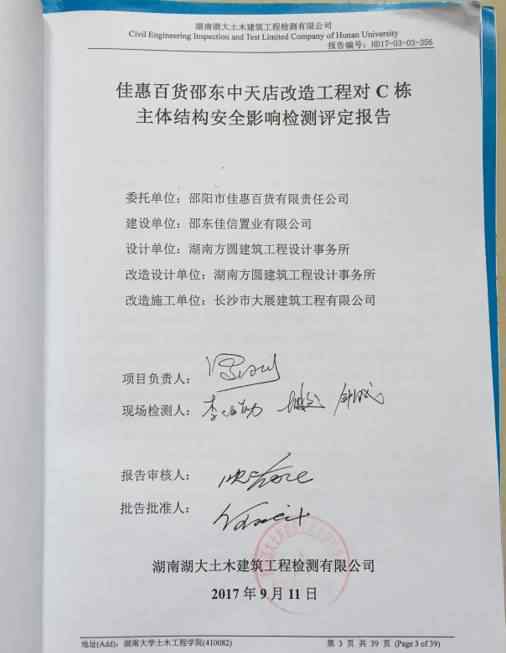 湖南湖大土木建筑工程检测有限公司
Civil Engineering Inspection and Test Limited Company of Hunan University
报告编号：HD17-G3-03-356
佳惠百货邵东中天店改造工程对 C 栋
主体结构安全影响检测评定报告
委托单位：邵阳市佳惠百货有限责任公司
建设单位：邵东佳信置业有限公司
设计单位：湖南方圆建筑工程设计事务所
改造设计单位：湖南方圆建筑工程设计事务所
改造施工单位：长沙市大展建筑工程有限公司
项目负责人：
现场检测人：
报告审核人：
批告批准人：
湖南湖大土木建筑工程检测有限公司
2017 年 9 月 11 日
地址(Add)：湖南大学土木工程学院(410082)
第 3 页 共 39 页 (Page 3 of 39)